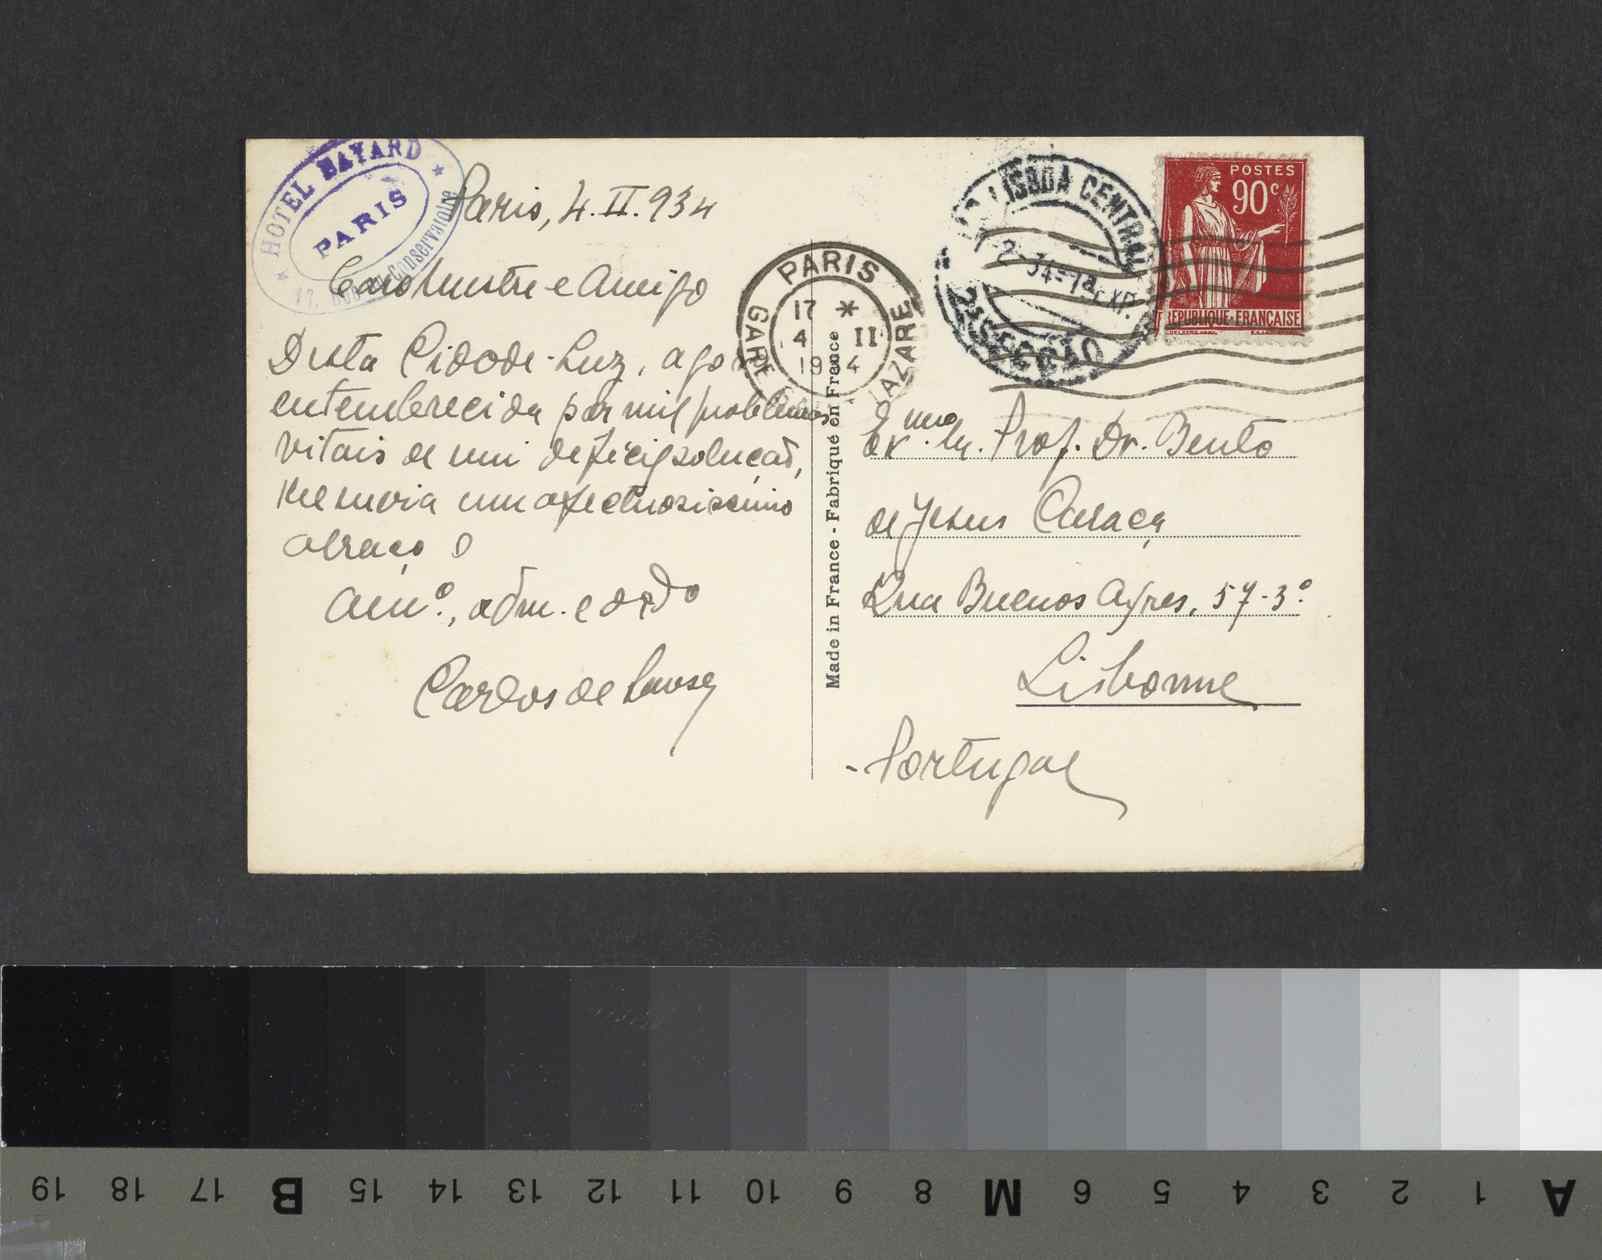 HOTEL BAYARD
PARIS
Conservatoire
Paris, 4.II.934
Caro Mestre e Amigo
Desta Cidade-Luz, agora
entenebrecida por mil problemas
vitais de mui dificil solução,
lhe envia um afectuosissimo
abraço o
Am.º, adm. e obdo
Carlos de
PARIS
17 *
4 II
1934
GARE LAZARE
LISBOA CENTRAL
2ª SECÇÃO
POSTES
90c
REPUBLIQUE-FRANÇAISE
Made in France - Fabriqué en France
Exmo. Sr. Prof. Dr. Bento
de Jesus Caraça
Rua Buenos Ayres, 57-3º
Lisbonne
- Portugal
19 18 17 B 15 14 13 12 11 10 9 8 M 6 5 4 3 2 1 A